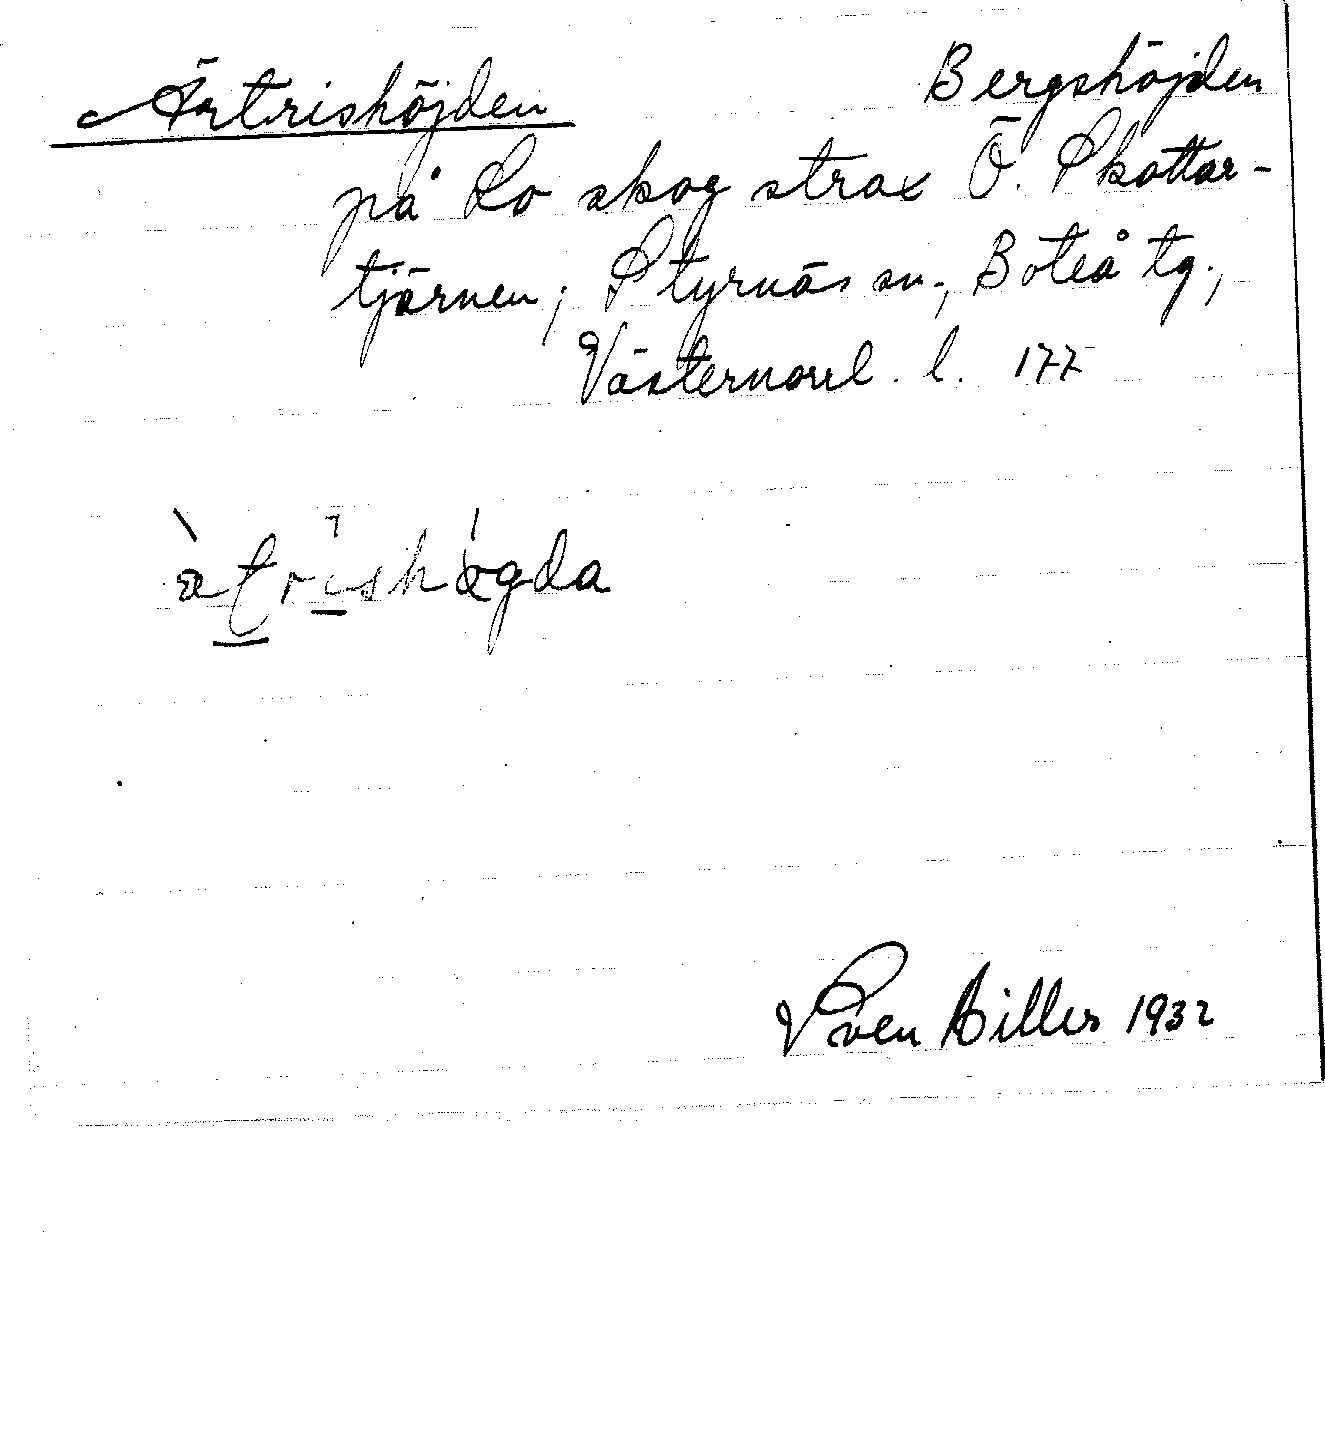 Ärtrishöjden Bergshöjden
på Lo skog strax Ö. Skottar-
tjärnen; Styrnäs sn., Boteå tg.,
Västernorrl. l. 177
Sven Hillers 1932